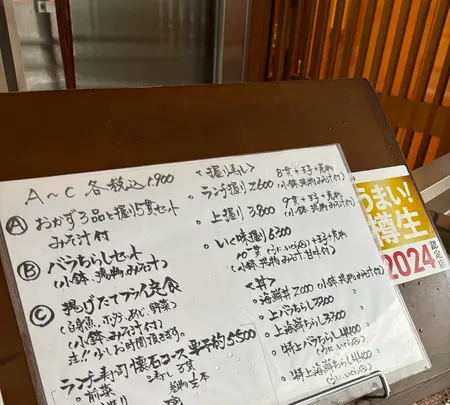 A〜C 各税込1,900
Ⓐ おかず3品と握り5貫セット
みそ汁付
Ⓑ バラちらしセット
(小鉢、漬物、みそ汁)
Ⓒ 揚げたてフライ定食
(白身魚、ホタテ、あじ、野菜)
(小鉢、みそ汁付)
注!! 少しお時間頂きます。
ランチ寿司懐石コース 要予約 5500
・前菜
・寿し 5貫
<握り寿し>
・ランチ握り 2600
8貫+玉子+巻物
(小鉢、漬物、みそ汁付)
・上握り 3800
9貫+玉子+巻物
(小鉢、漬物、みそ汁付)
・いく味握り 6300
10貫(うに、いくら入)+玉子+巻物
(小鉢、漬物、みそ汁、甘味付)
<丼>
・海鮮丼 2000 (小鉢、漬物、みそ汁付)
・上バラちらし 2200
・上海鮮ちらし 3300
・特上バラちらし 4400
(うに、いくら入)
・特上海鮮ちらし 4400
(うに、いくら入)
うまい!
樽生
2024
認定店